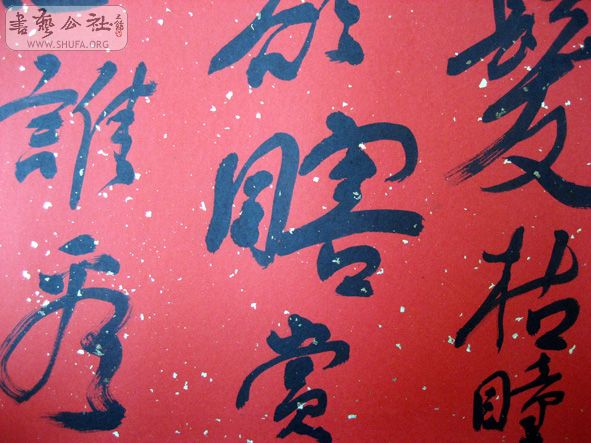 書藝公社
WWW.SHUFA.ORG
髮枯瞳
瞎賞
誰